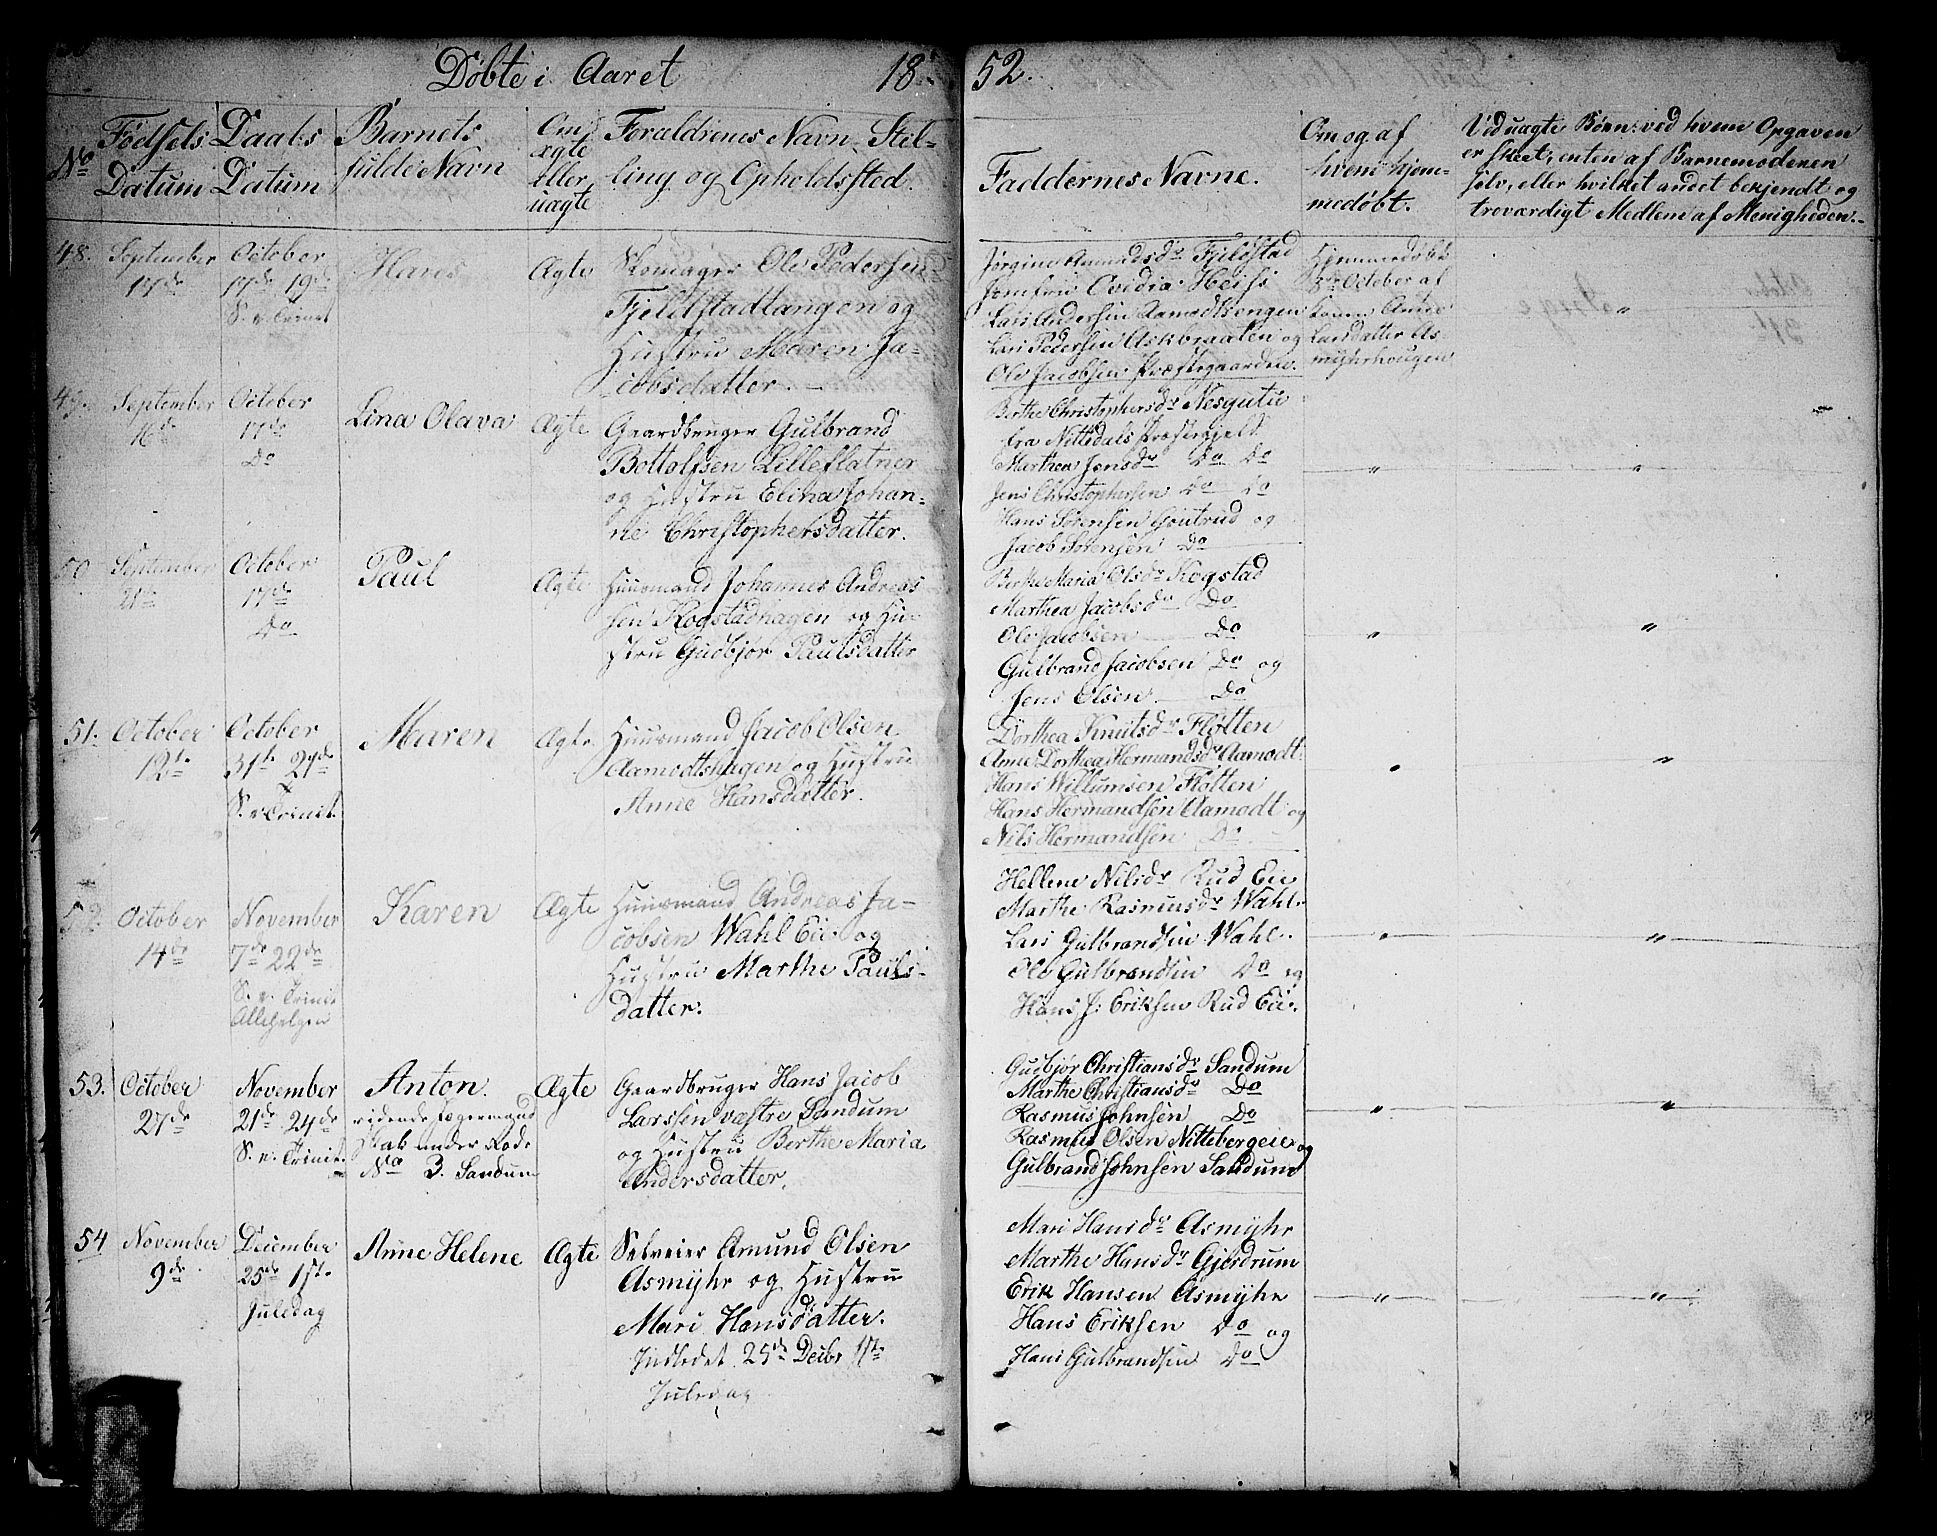 Døbte i Aaret 1852.
No
Fødsels Datum
Daabs Datum
Barnets fulde Navn
Om ægte eller uægte
Forældrenes Navn, Stilling og Opholdssted.
Faddernes Navne.
Om og af hvem hjemmedøbt.
Ved uægte Børn: ved hvem Opgaven er skeet, enten af Barnemoderen selv, eller hvilket andet bekjendt og troværdigt Medlem af Menigheden.
48.
September 17de
October 17de 19de S. v. Trinit
Hans
Ægte
Skomager Ole Pedersen
Fjeldstadtangen og
Hustru Maren Ja-
cobsdatter.
Jørgine Aamodsdr Fjeldstad
Jomfru Ovidia Heifs
Lars Andersen Aamodtsengen
Lars Pedersen Askbraaten og
Ole Jacobsen Præstegaarden.
Hjemmedøbt
3die October af
Anne
Larsdatter As-
myhrhougen
49.
September 16de
October 17de Do
Lina Olava
Ægte
Gaardbruger Gulbrand
Bottolfsen Lilleflatner
og Hustru Elina Johan-
ne Christophersdatter.
Berthe Christophersdr Nesgutu
fra Nittedals Præstegjeld
Marthea Jensdr Do Do
Jens Christophersen Do Do
Hans Sørensen Goutrud og
Jacob Sørensen Do
50
September 21de
October 17de Do
Paul
Ægte
Huusmand Johannes Andreas
sen Kogstadhagen og Hu-
stru Gudbjør Paulsdatter
Berthe Maria Olsdr Kogstad
Marthea Jacobsdr Do
Ole Jacobsen Do
Gulbrand Jacobsen Do og
Jens Olsen Do
51.
October 12te
October 31te 21de S. v. Trinit.
Maren
Ægte
Huusmand Jacob Olsen
Aamodtshagen og Hustru
Anne Hansdatter.
Dorthea Knutsdr Fløtten
Anne Dorthea Hermandsdr Aamodt
Hans Willumsen Fløtten
Hans Hermandsen Aamodt og
Nils Hermandsen Do.
52.
October 14de
November 7de 22de S. v. Trinit Allehelgen
Karen
Ægte
Huusmand Andreas Ja-
cobsen Wahl Eie og
Hustru Marthe Pauls-
datter.
Hellene Nilsdr Rud Eie
Marthe Rasmusdr Wahl.
Lars Gulbrandsen Wahl.
Ole Gulbrandsen Do og
Hans J. Eriksen Rud Eie.
53.
October 27de
November 21de 24de S. v. Trinit.
Anton.
ridende Jægermand
Stab under Rode
No 3. Sandum
Ægte
Gaardbruger Hans Jacob
Larssen væstre Sandum
og Hustru Berthe Maria
Andersdatter.
Gudbjør Christiansdr Sandum
Marthe Christiansdr Do
Rasmus Johnsen Do
Rasmus Olsen Nittebergeie og
Gulbrand Johnsen Sandum
54
November 9de
December 25de 1ste Juledag
Anne Helene
Ægte
Selveier Amund Olsen
Asmyhr og Hustru
Mari Hansdatter.
Indledet 25de Decbr 1ste
Juledag
Mari Hansdr Asmyhr
Marthe Hansdr Gjerdrum
Erik Hansen Asmyhr
Hans Eriksen Do og
Hans Gulbrandsen Do